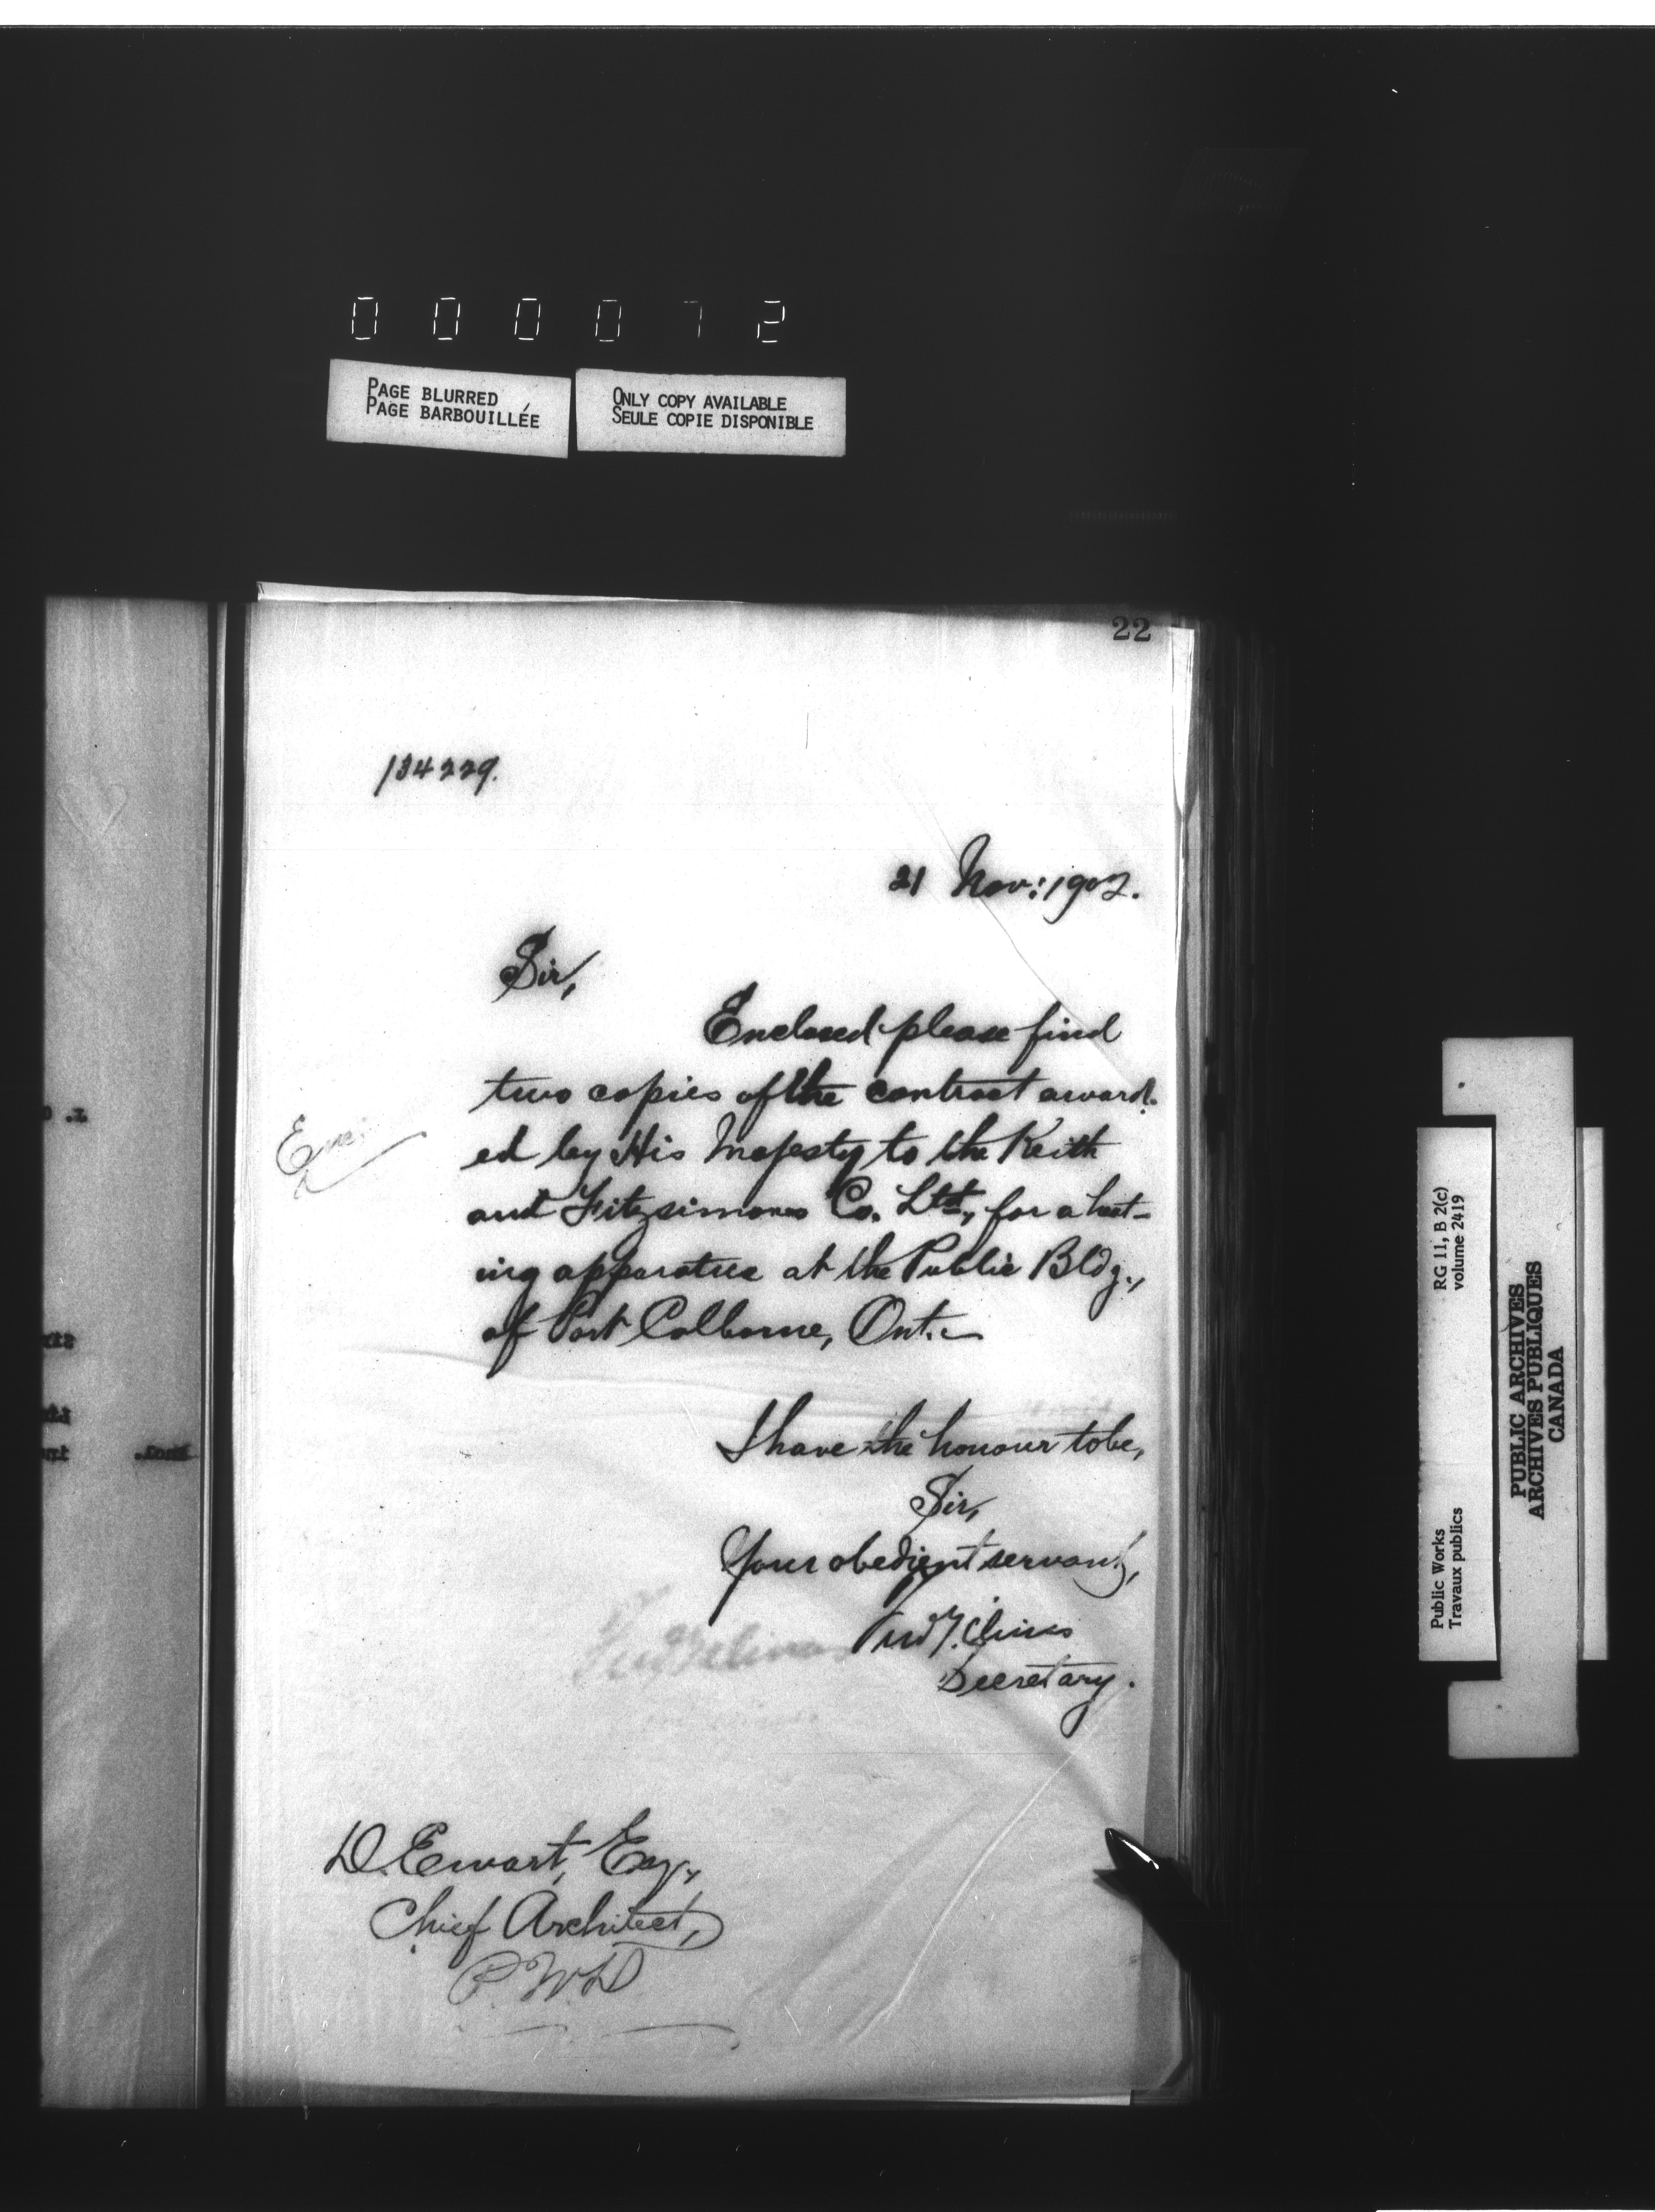 000072
PAGE BLURRED
PAGE BARBOUILLÉE
ONLY COPY AVAILABLE
SEULE COPIE DISPONIBLE
22
134229.
21 Nov: 1902.
Sir,
Enclosed please find
two copies of the contract award-
ed by His Majesty to the Keith
and Fitzsimons Co. Ltd., for a heat-
ing apparatus at the Public Bldg.,
of Port Colborne, Ont.
I have the honour to be,
Sir,
Your obedient servant,
Secretary.
D. Ewart, Esq.,
Chief Architect,
P.W.D
Public Works
Travaux publics
RG 11, B 2(c)
volume 2419
PUBLIC ARCHIVES
ARCHIVES PUBLIQUES
CANADA